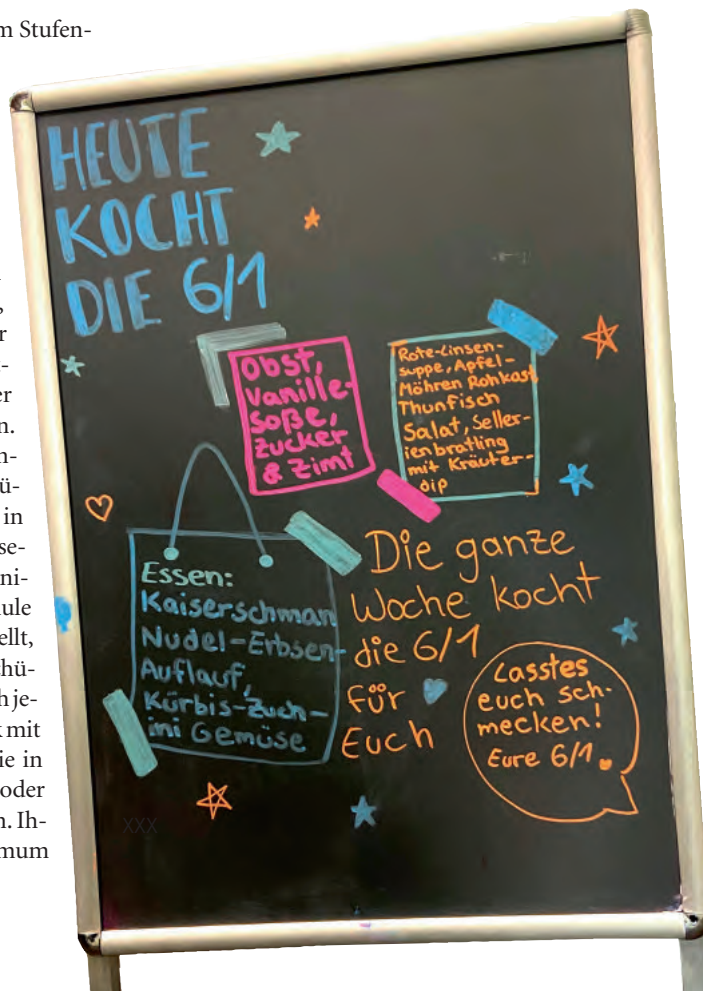 m Stufen-
r
er
n.
n-
ü-
in
se-
ni-
ule
ellt,
hü-
h je-
mit
ie in
oder
n. Ih-
mum
HEUTE
KOCHT
DIE 6/1
Obst,
Vanille-
Soße,
Zucker
& Zimt
Rote-Linsen-
suppe, Apfel-
Möhren Rohkast
Thunfisch
Salat, Seller-
ienbratling
mit Kräuter-
dip
Essen:
Kaiserschman
Nudel-Erbsen-
Auflauf,
Kürbis-Zuch-
ini Gemüse
Die ganze
Woche kocht
die 6/1
für
Euch
Lasstes
euch sch-
mecken!
Eure 6/1
XXX